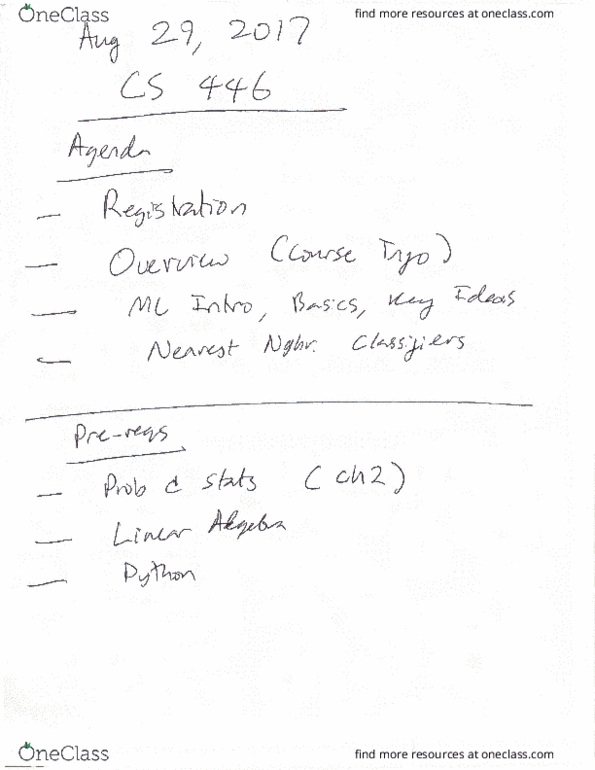 OneClass
find more resources at oneclass.com
Aug 29, 2017
CS 446
Agenda
— Registration
— Overview (Course Info)
— ML Intro, Basics, Key Ideas
— Nearest Nghr. Classifiers
Pre-reqs
— Prob & Stats (ch2)
— Linear Algebra
— Python
OneClass
find more resources at oneclass.com